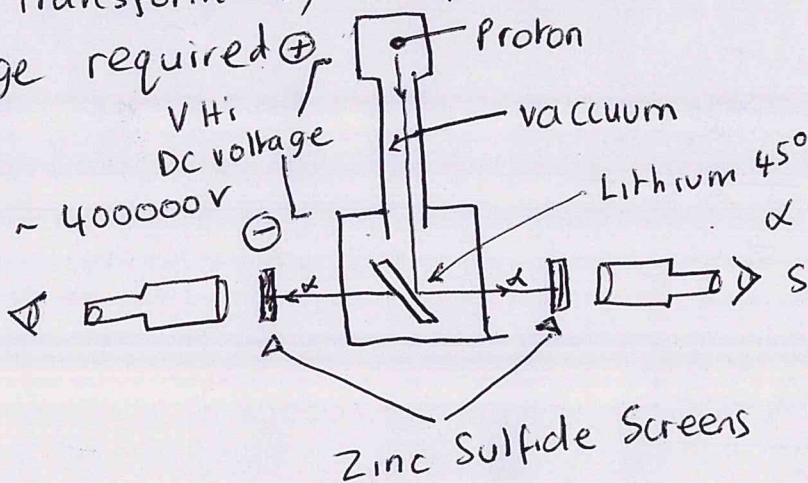 Transform
ge required ⊕
Proton
V Hi
DC voltage
~ 400000V
⊖
vaccuum
Lithium 45°
α
α
α
S
Zinc Sulfide Screens